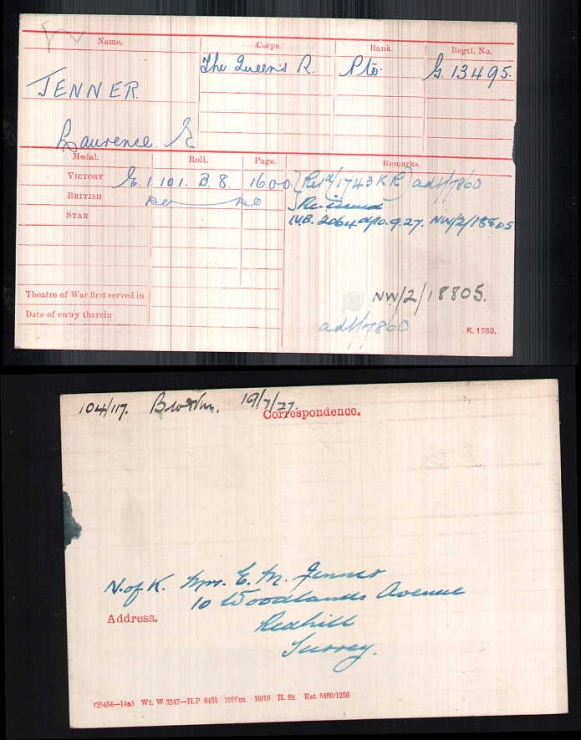 Name. Corps. Rank. Regtl. No.
JENNER. The Queen's R. Pte. G. 13495.
Laurence. E
Medal. Roll. Page. Remarks.
VICTORY E. 1 101. B. 8. 1600 (Retd/1743 K R) adt/7860
BRITISH Do Do Re-issued
STAR I.V.B. 2064 d/10.9.27. NW/2/18805
Theatre of War first served in NW/2/18805.
Date of entry therein adt/7860
K. 1380.
104/117. 19/7/27.
Correspondence.
N. of K. Mrs. E. M. Jenner
10 Woodlands Avenue
Address. Redhill
Surrey.
Wt. W 3247—H.P. 10/19 H. St.